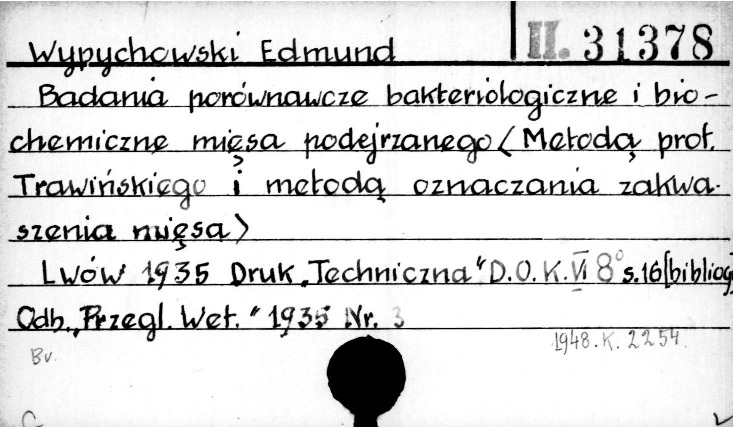 Wypychowski Edmund II. 31378
Badania porównawcze bakteriologiczne i bio-
chemiczne mięsa podejrzanego <Metodą prof.
Trawińskiego i metodą oznaczania zakwa-
szenia mięsa>
Lwów 1935 Druk „Techniczna" D.O.K.VI 8° s.16[bibliog
Odb. „Przegl. Wet." 1935 Nr. 3
Bv. 1948.K.2254.